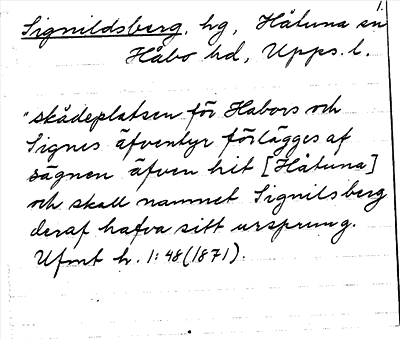 1.
Signildsberg, hg, Håtuna sn
Håbo hd, Upps. l.
"skådeplatsen för Habors och
Signes äfventyr förlägges af
sägnen äfven hit [Håtuna]
och skall namnet Signilsberg
deraf hafva sitt ursprung.
Ufmt h. 1:48 (1871).